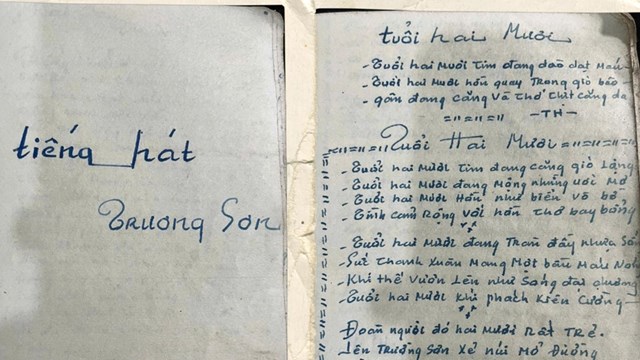 tiếng hát
Trương Sơn
tuổi hai Mươi
- Tuổi hai Mươi Tim đang dào dạt Máu
- Tuổi hai Mươi hồn quay Trong gió bão
- gân đang căng và thớ thịt căng da
="="="= -TH-
Tuổi Hai Mươi
- Tuổi hai Mươi Tim đang căng gió Lộng
- Tuổi hai Mươi đang Mộng những ước Mơ
- Tuổi hai Mươi Hồn như biển vô bờ
- Tình cảm Rộng với hồn thơ bay bổng
- Tuổi hai Mươi đang Tràn đầy nhựa
- Sức Thanh Xuân Mang Một bầu Máu
- Khí thế Vươn Lên như Sóng đại dương
- Tuổi hai Mươi khí phách Kiên Cường
Đoàn người đó hai Mươi Rất Trẻ.
Lên Trường Sơn Xẻ núi Mở Đường